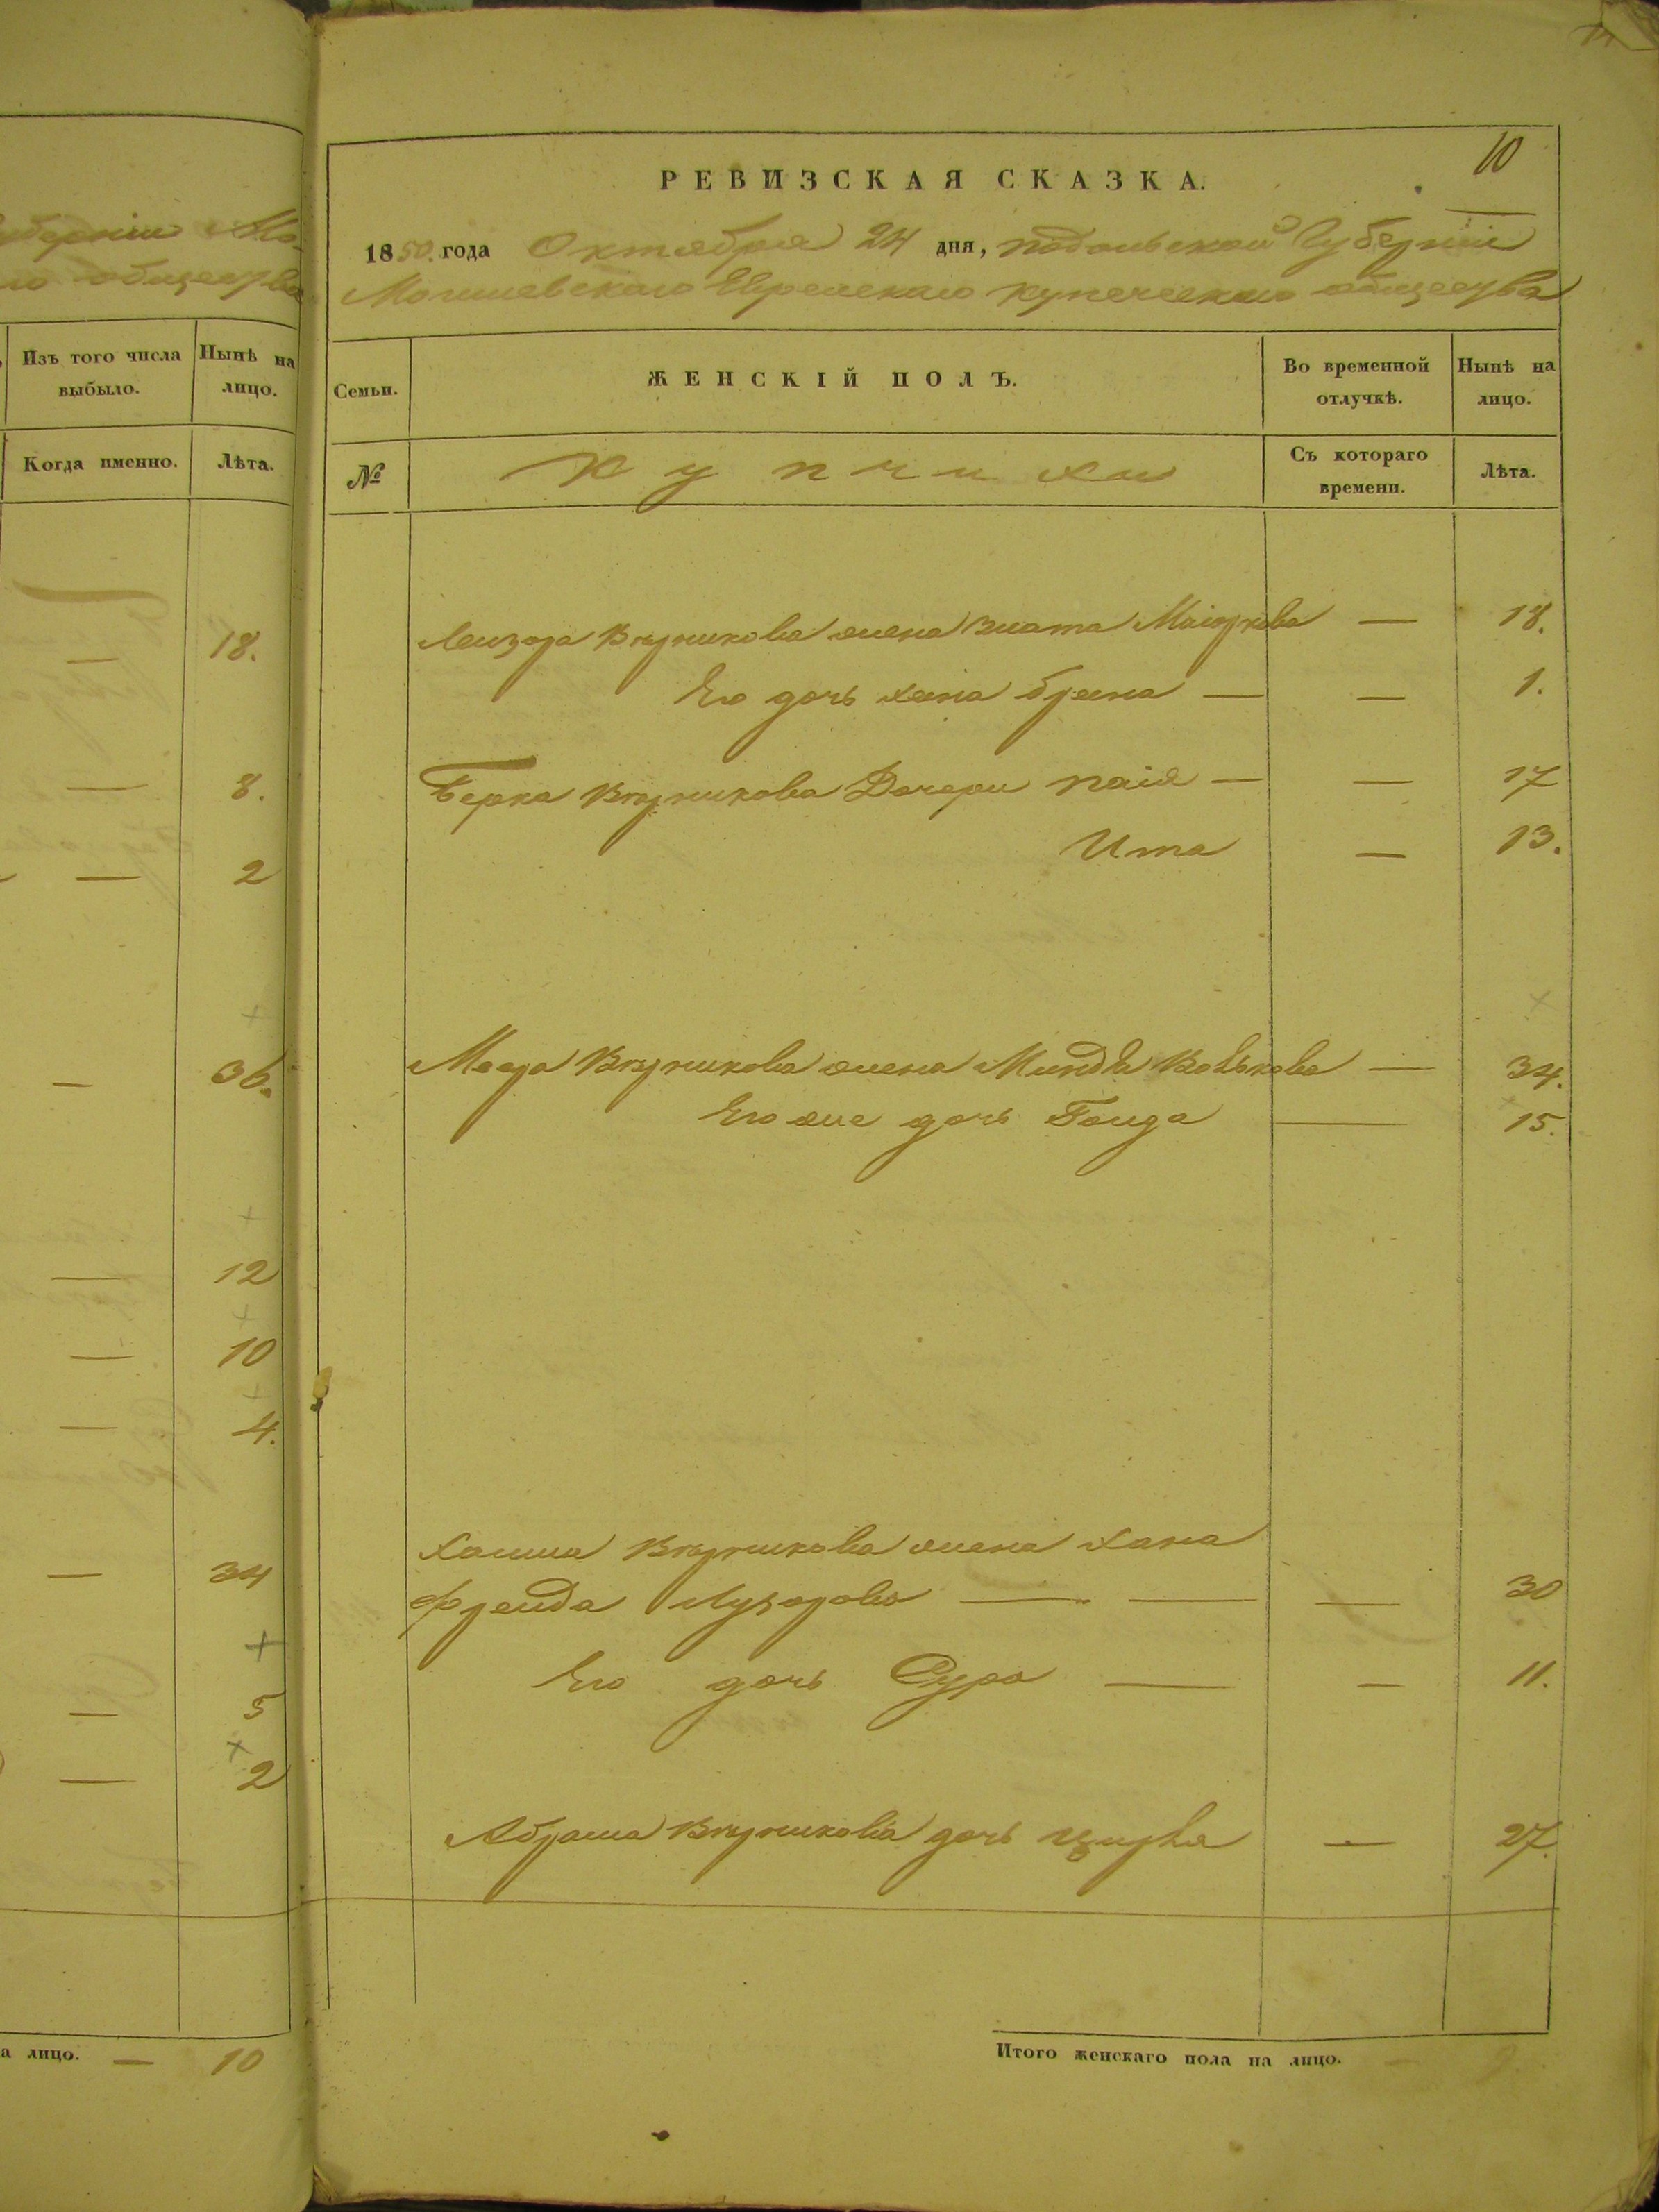 10
РЕВИЗСКАЯ СКАЗКА.
1850. года Октября 24 дня, подольской Губерніи
Могилевскаго Еврейскаго купеческаго общества
общества
Изъ того числа выбыло.
Нынѣ на лицо.
Когда именно.
Лѣта.
18.
8.
2
36.
12
10
4.
34
5
2
а лицо. — 10
Семьи.
ЖЕНСКІЙ ПОЛЪ.
Во временной отлучкѣ.
Нынѣ на лицо.
№
Купчихи
Съ котораго времени.
Лѣта.
Лейзора жена Злата Маіоркова — 18.
Его дочь хана брана — — 1.
Берка Дочери паія — — 17
Ита — 13.
жена Миндля Вовькова — 34.
Его же дочь — 15.
Хаима жена хана
фрейда Лузорова — — — 30
Его дочь Сура — — 11.
Абрама дочь — 27.
Итого женскаго пола на лицо.